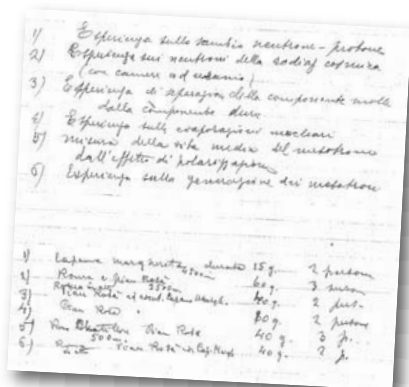 1) Esperienza sullo scambio neutrone-protone
2) Esperienza sui neutroni della radiaz cosmica
(con camere ad uranio)
3) Esperienza di separazione della componente molle
dalla componente dura
4) Esperienza sulle evaporazioni nucleari
5) misura della vita media del mesotrone
dall'effetto di polarizzazione
6) Esperienza sulla generazione dei mesotroni
1) Capanna margherita 15 g. 2 persone
2) Roma e Pian Rosà 60 g. 3 persone
3) Pian Rosà 40 g. 2 per.
4) Pian Rosà 2 persone
5) Pian Rosà 40 g. 3 p.
500 m
6) Pian Rosà 40 g. 2 p.